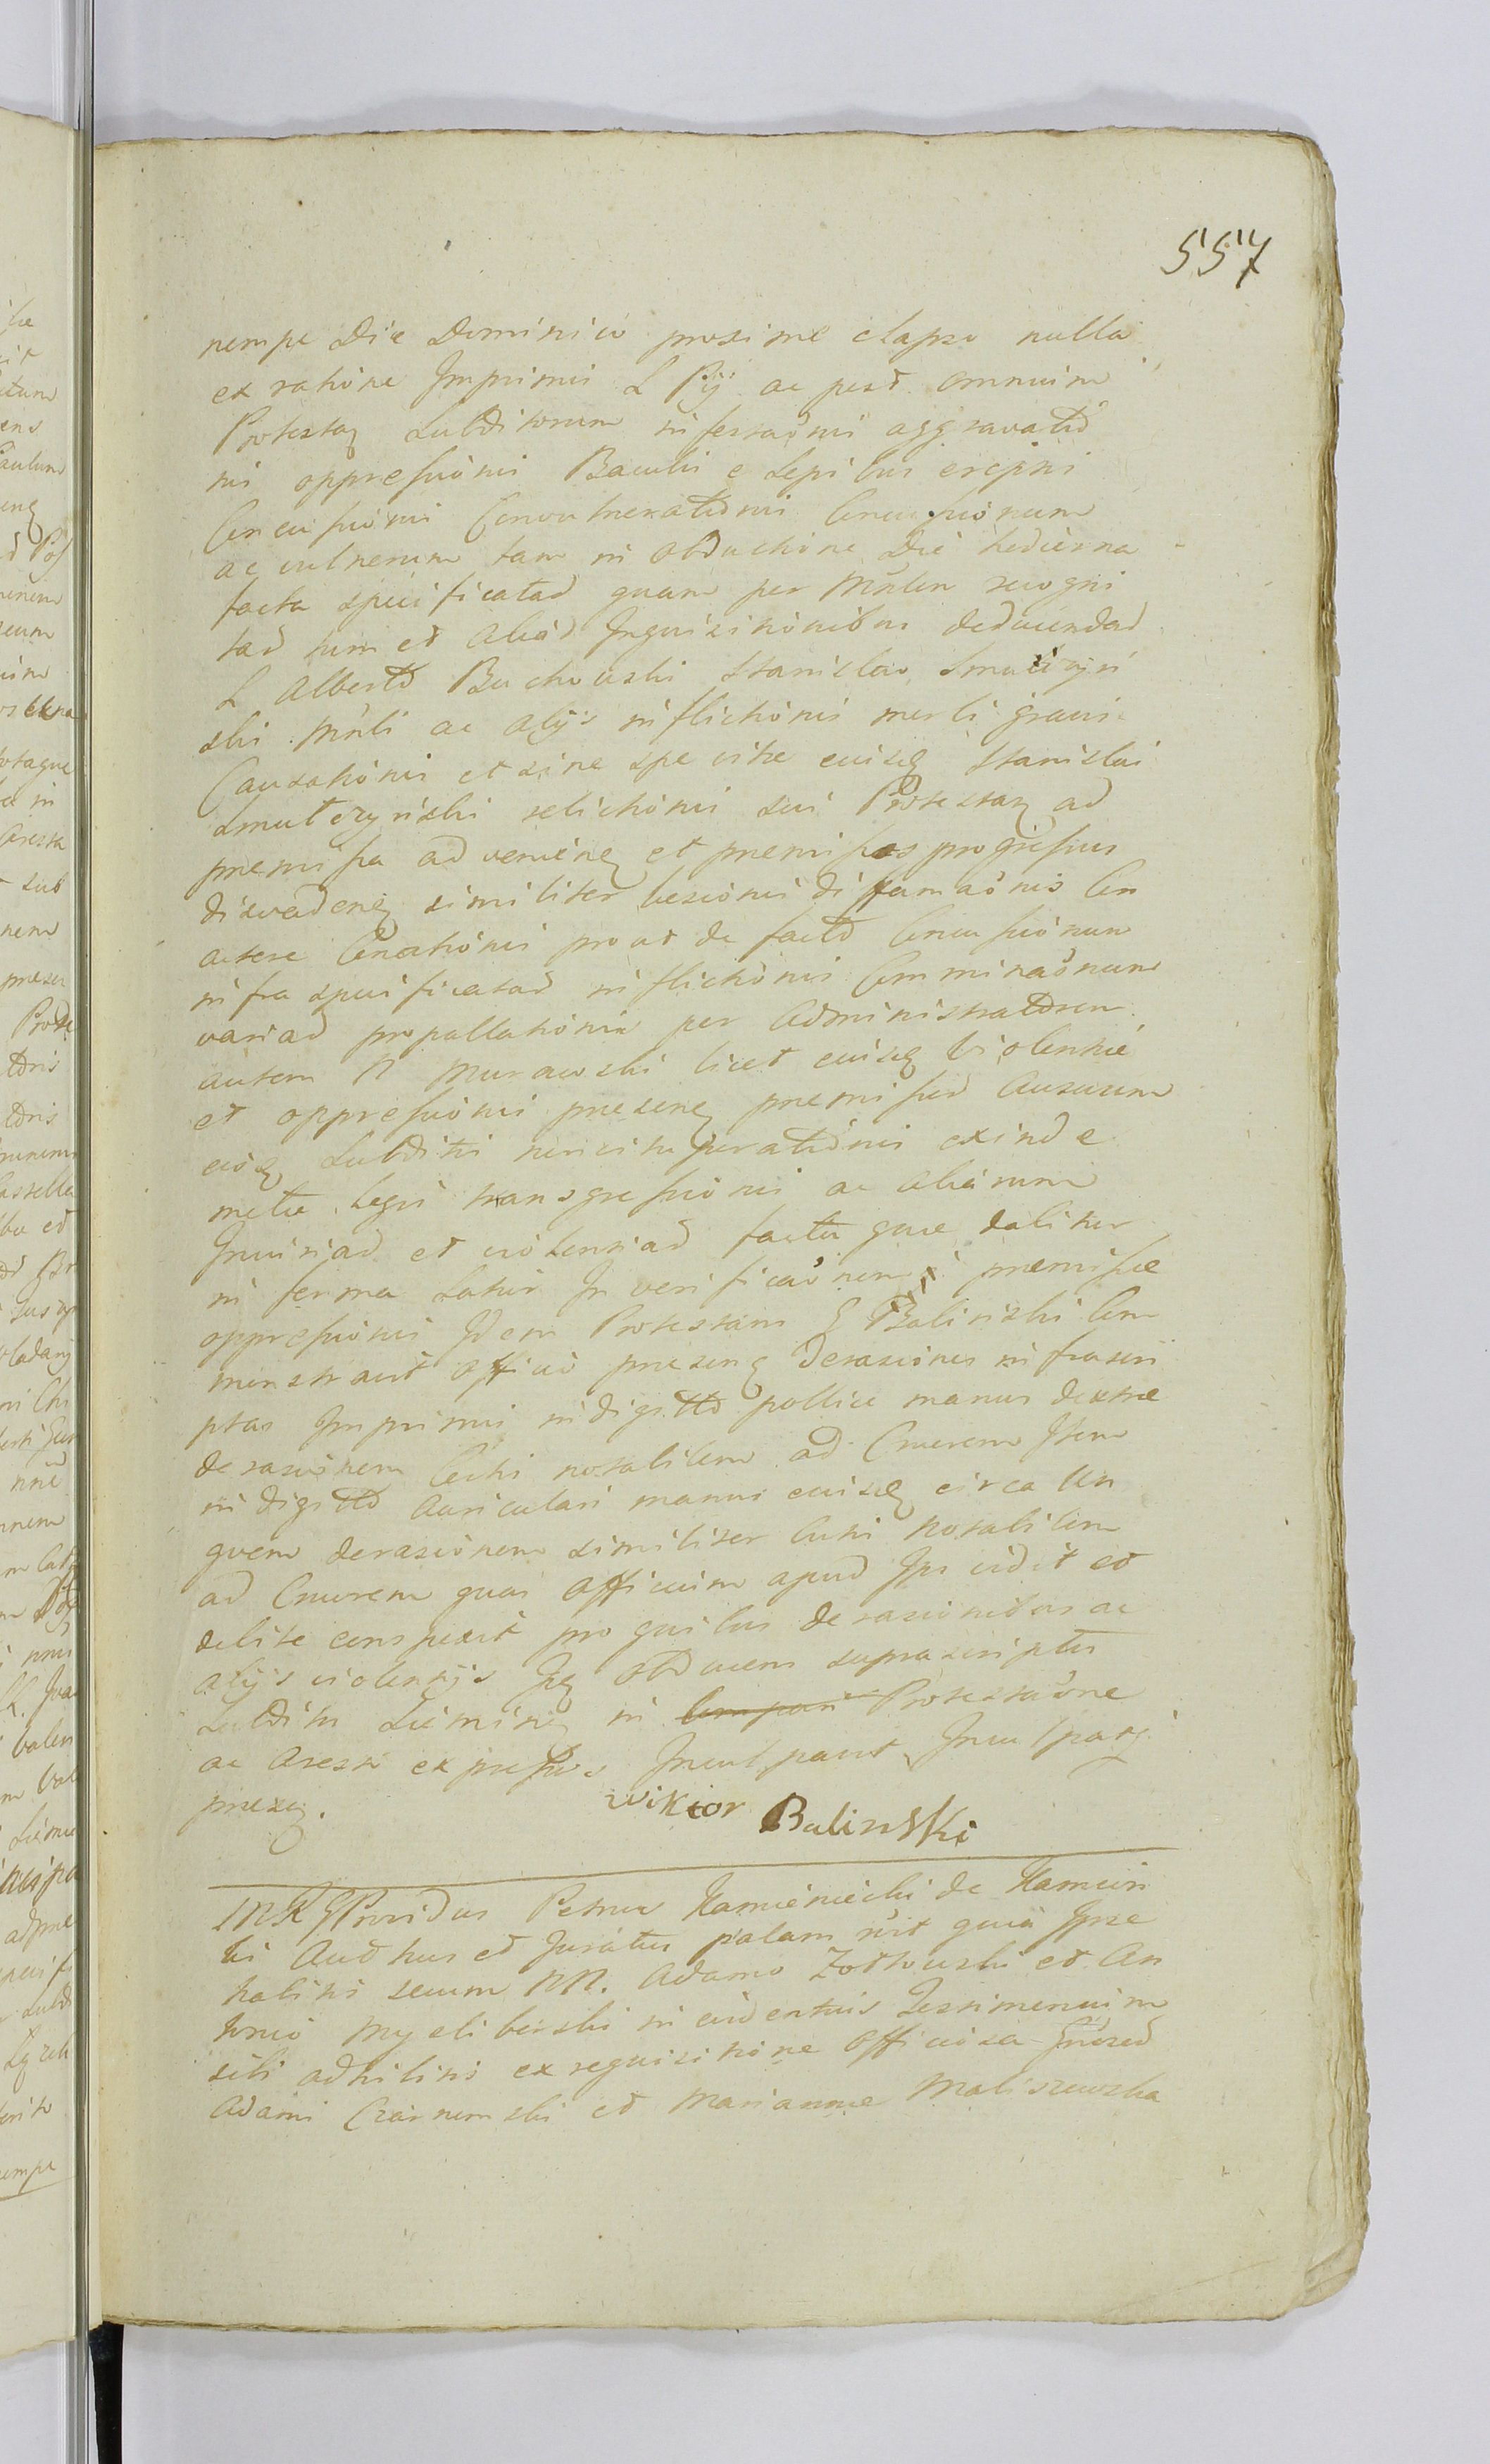 557
nempe Die Dominico proxime elapso nulla
ex ratione Imprimis L Pij ac post omnium
Protestaq Subditorum infestaõnis aggravatio
nis oppressionis Baculi e Sepibus erepti
Concussionis Convulnerationis Concussionum
ac vulnerum tam in obductione Die hodierna
facta specificatad quam per Mnlem recogni
tad tum et aliad Inquisitionibus deducendad
L Alberto Buchowski Stanislao Smutrzyń
ski Mnli ac alijs inflictionis merli gravis
Causationis et sine spe vitæ ejusq Stanislai
Smutrzynski relictionis sui Protestaq ad
premissa advenienq et premissos progressus
disvadenq similiter læsionis diffamaõnis Con
actere Conationis prout de facto Concussionum
infra specificatad inflictionis Comminaõnum
variad propallationis per Administratorem
autem N Murawski licet ejusq Violentiæ
et oppressionis præsenq premissor Ausuum
eosq Subditi
metæ Legis transgressionis ac aliarum
Injuriad et violentiad facta quæ taliter
in forma Latius In verificaõnem premissæ
oppressionis Idem Protestans G Balinski Com
monstravit officio præsenq Derasiones infrascri
ptas Imprimis in digitto pollice manus dextræ
derasionem Cuti notabilem ad Cruorem Item
in digitto Auriculari manus ejusq circa Un
guem derasionem similiter Cutis notabilem
ad Cruorem quas officium apud Ips vidit et
debite conspexit pro quibus derasionibus ac
alijs violentijs Iq obducens suprascriptos
Subditos in Protestaõne
ac Arest expressos Inculpavit Inculpatq
præseq.
Wiktor Balinski
INR G Providus Petrus Kamieniecki de Kamien
ki Aud hus et Juratus palam rñt quia Ipse
habitis secum NN. Adamo Zotkowski et An
tonio Mysliborski in evidentius Testimonium
sibi adhibitis ex requisitione Officiosa Gnosed
Adami Czarnomski et Mariannæ Maliszewska